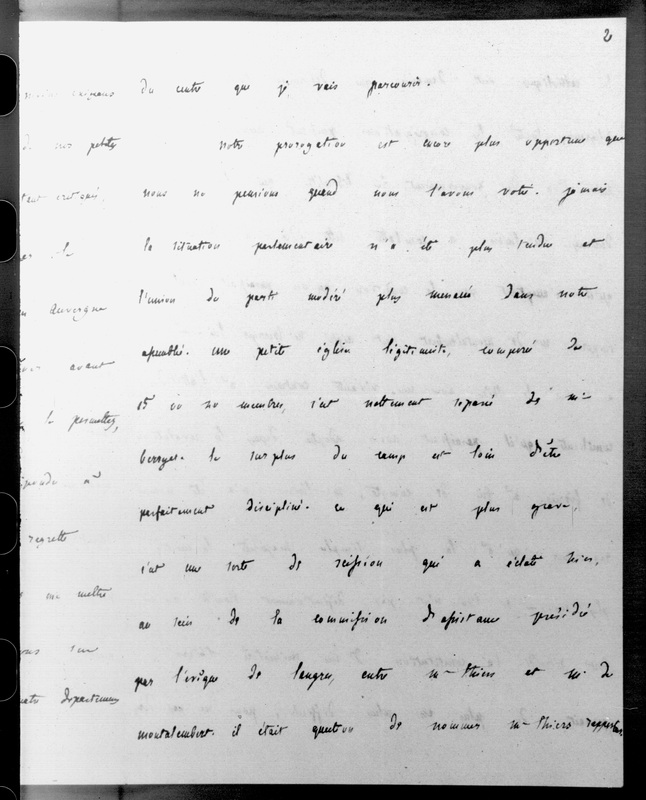 2
du centre que je vais parcourir.
notre prorogation est encore plus opportune que
nous ne pensions quand nous l'avons votée. jamais
la situation parlementaire n'a été plus tendue et
l'union du parti modéré plus menacée dans notre
assemblée. une petite église légitimiste, composée de
15 ou 20 membres, s'est nettement séparée de m-
berryer. le surplus du camp est loin d'être
parfaitement discipliné. ce qui est plus grave,
c'est une sorte de scission qui a éclaté hier,
au sein de la commission d'assistance présidée
par l'évêque de langres, entre m- thiers et m. de
montalembert. il était question de nommer m- thiers rapporteur.
de nos petites
auvergne
avant
regrette
mettre
départemens